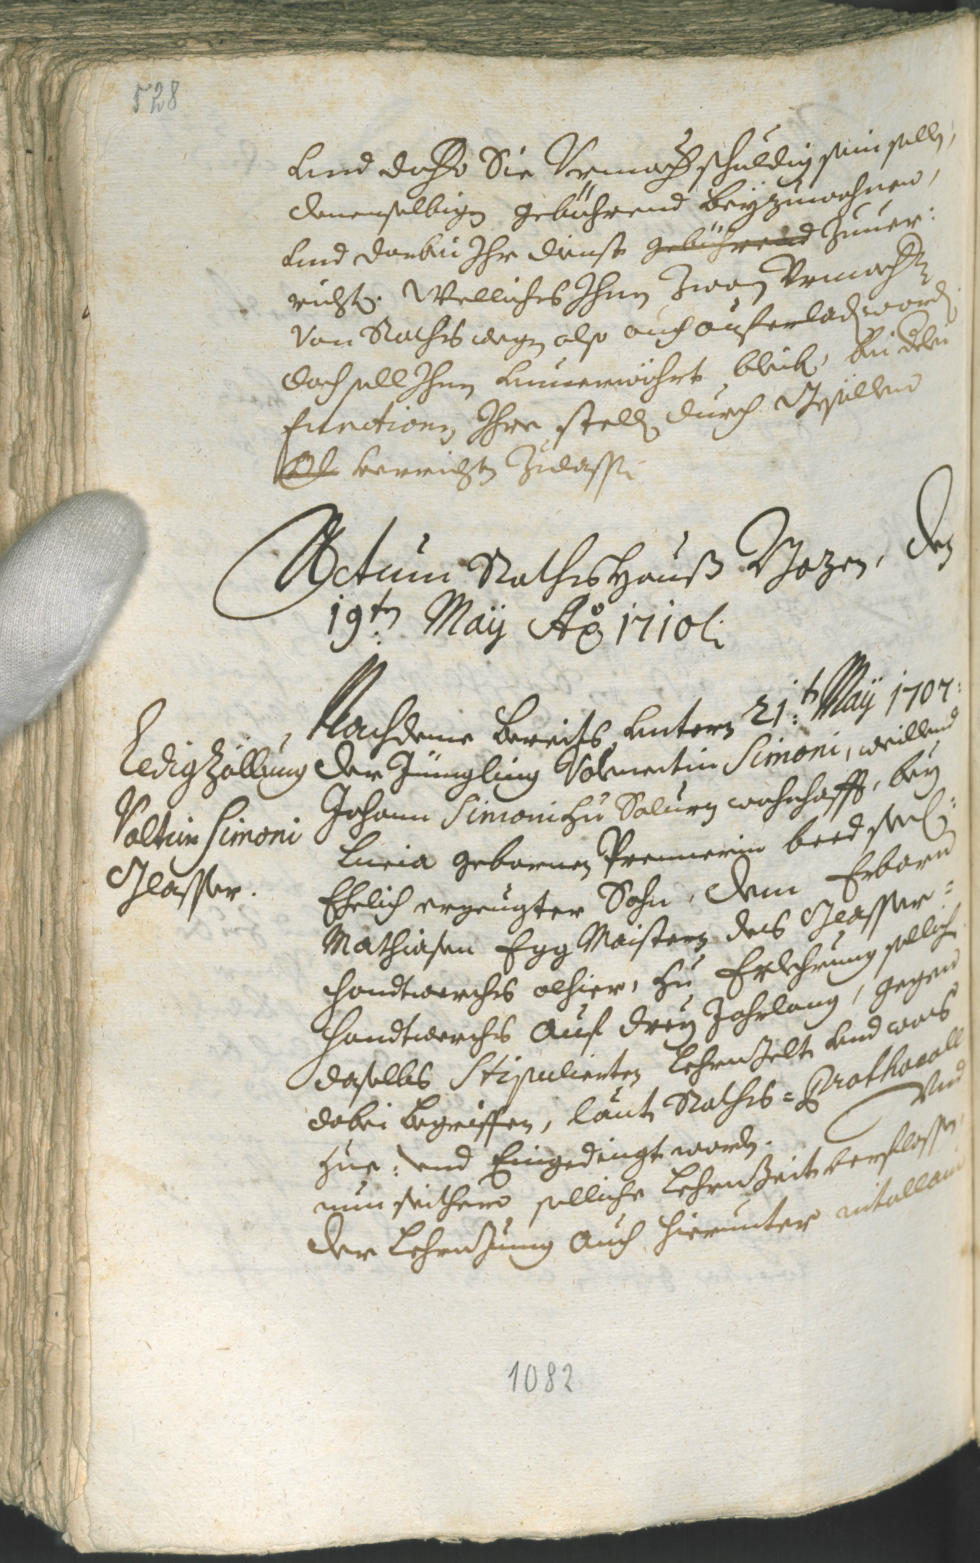 528
und daß Sie Vermög schuldig sein sollen,
denenselbigen gebührend beÿzuwohnen,
und dabeÿ Ihr dienst gebührend zuuer:
richten. Welliches Ihnen zwaÿ
Von Rathswegen also auch auferladen worden
doch soll Ihnen unuerwöhrt bleiben, bei
functionen Ihre stell durch Gesellen
verrichten zulassen.
Actum Rathshauß Bozen, den
19ten Maÿ Ao 1710
Ledigzöllung
Valtin Simoni
Glasser.
Nachdeme bereits untern 21:ten Maÿ 1707:
der Jüngling Valentin Simoni, weillend
Johann Simoni zu Salurn wohnhafft, beÿ
Lucia gebornen Prennerin beed seel:
Ehelich erzeugter Sohn, dem Erbarn
Mathiasen Egg Maistern des Glasser:
handtwerchs alhier, zu Erlehrnung sollich
handtwerchs auf dreÿ Jahrlang, gegen
daselbs Stipulierten Lehrngelt und was
dabei begriffen, laut Raths=Prothocoll
hin: und Eingedingt worden. Und
nun seithero solliche Lehrnzeit verflossen
der Lehrnjung auch hierunter
1082